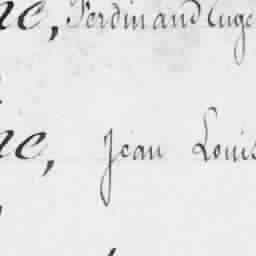 ne, Ferdinand Euge
ne, Jean Louis